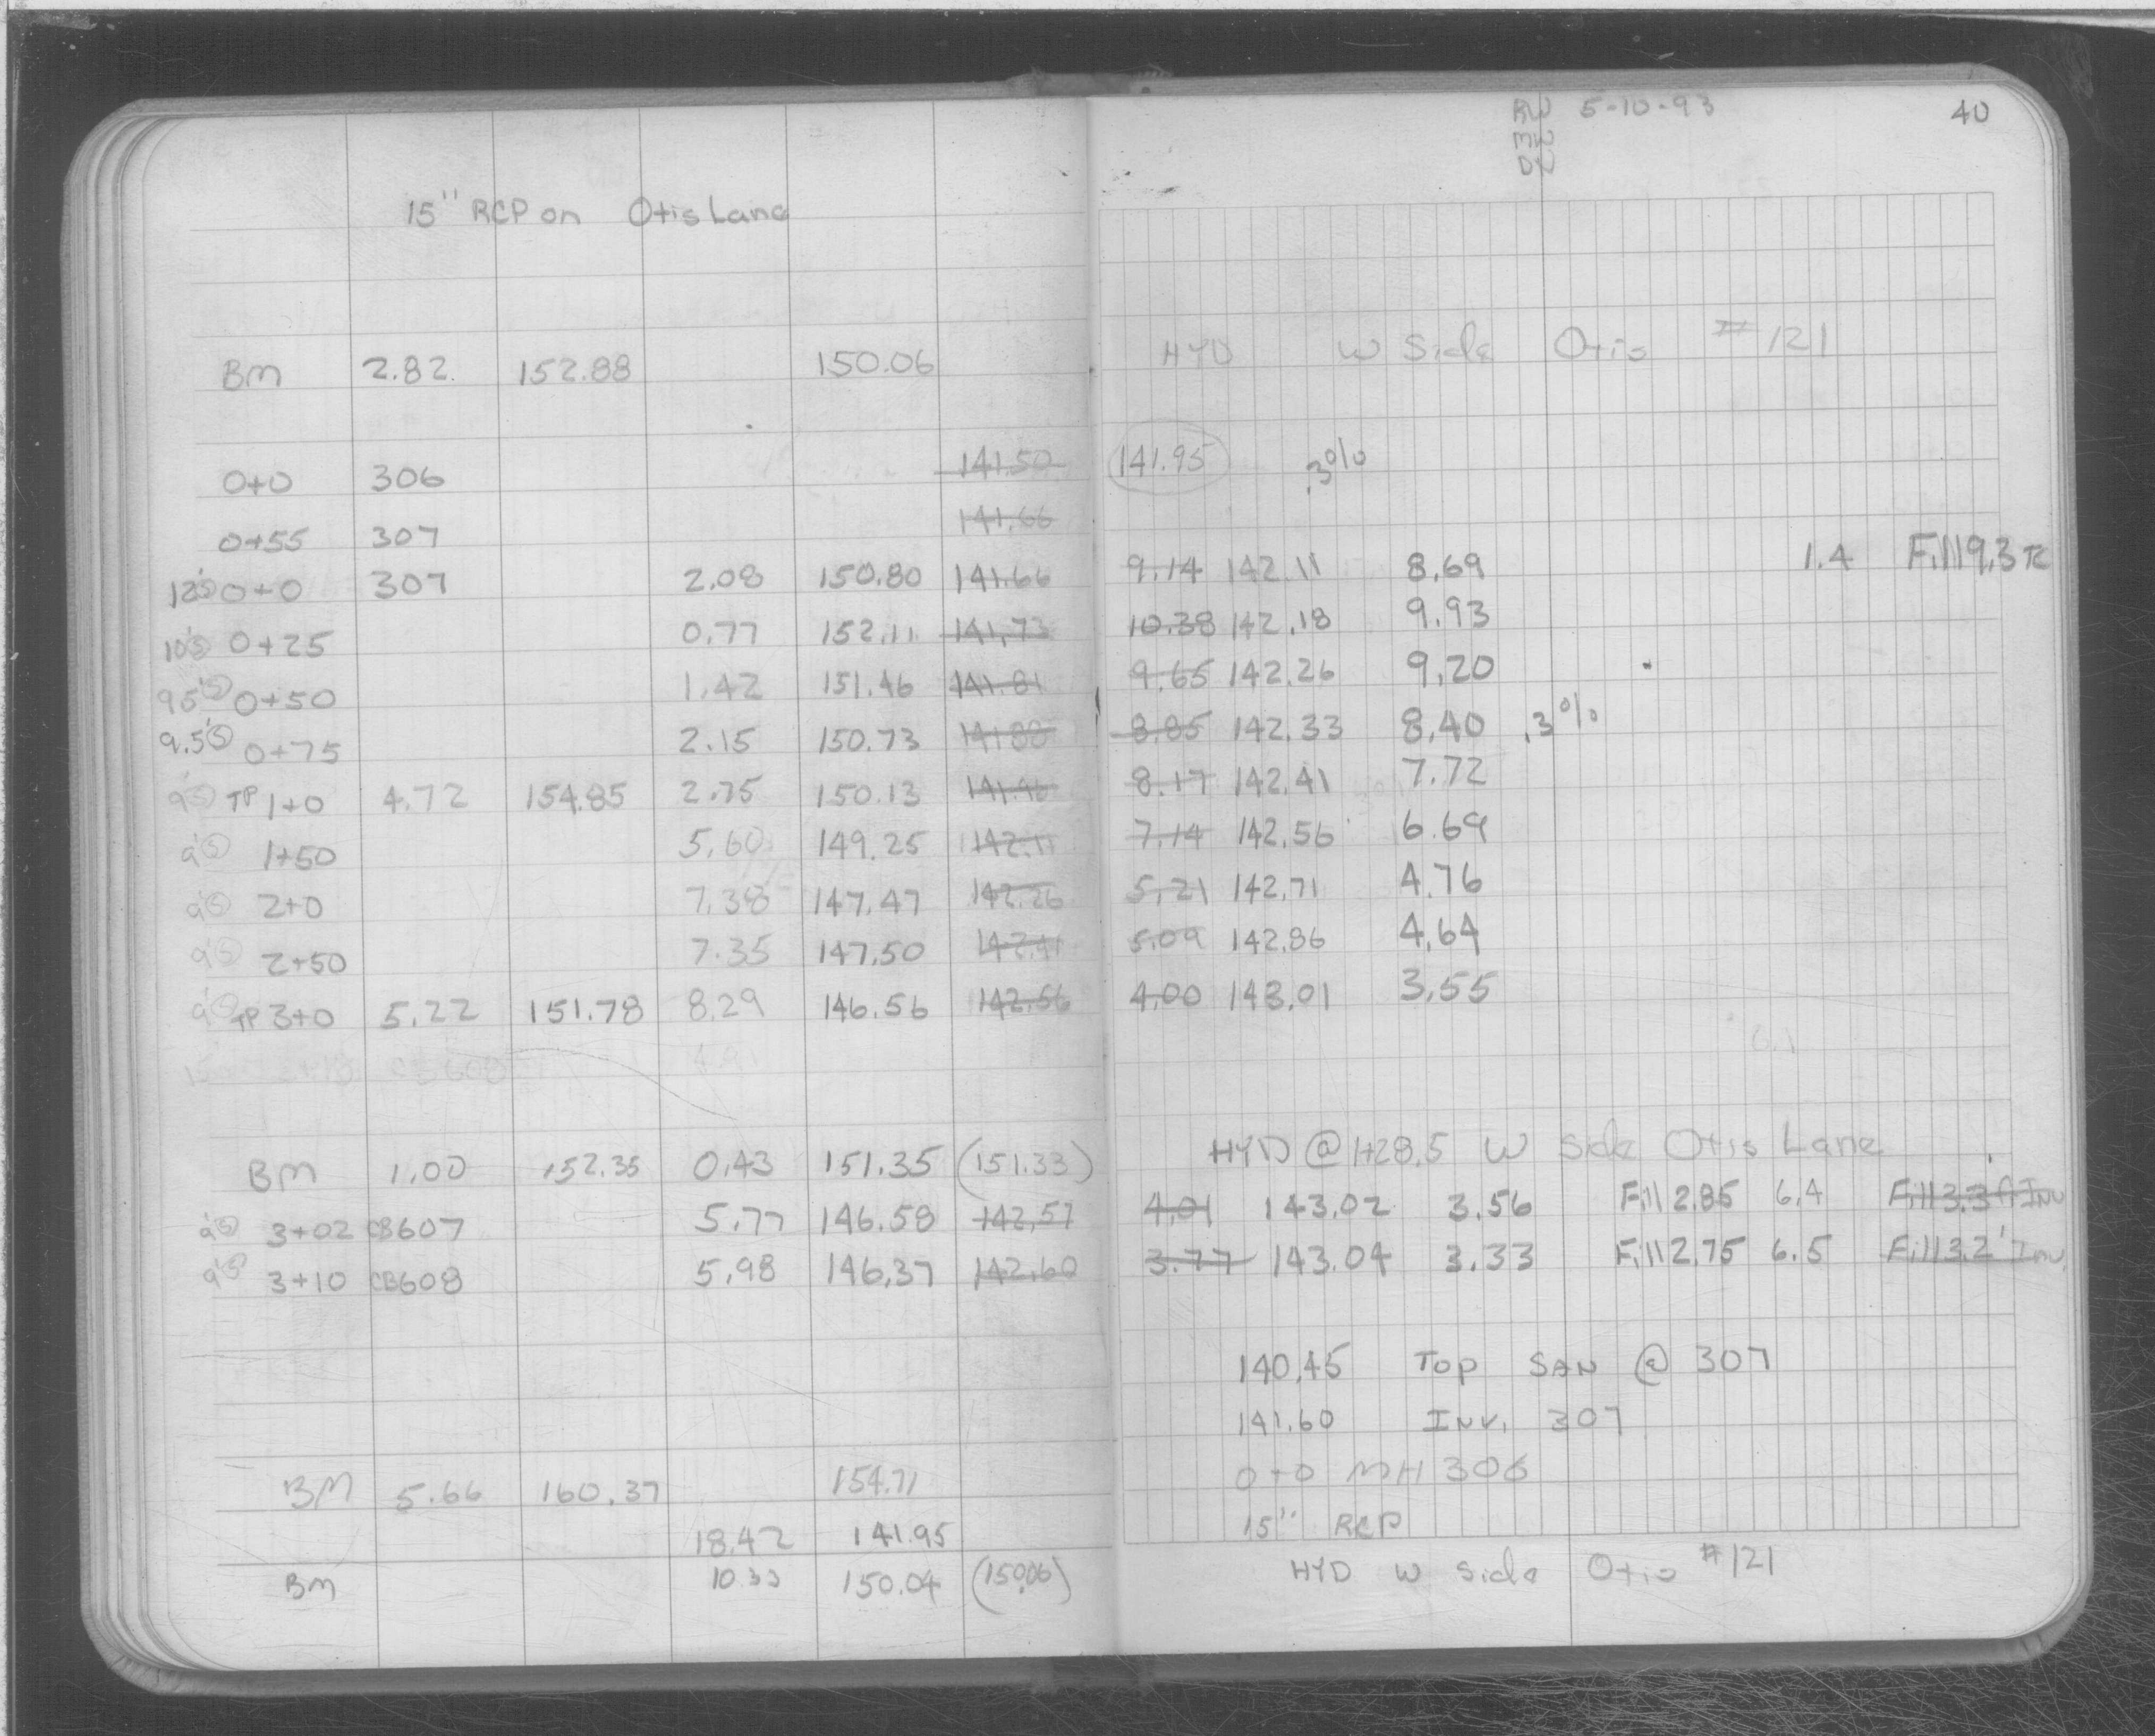 5-10-93 40
15" RCP on Otis Lane
BM 2.82 152.88 150.06 HYD W Side Otis #121
0+0 306 141.50 141.95 .3%
0+55 307 141.66
12'Ⓢ 0+0 307 2.08 150.80 141.66 9.14 142.11 8.69 1.4 Fill 9.3 TC
10'Ⓢ 0+25 0.77 152.11 141.73 10.38 142.18 9.93
9.5'Ⓢ 0+50 1.42 151.46 141.81 9.65 142.26 9.20
9.5'Ⓢ 0+75 2.15 150.73 141.88 8.85 142.33 8.40 .3%
9'Ⓢ TP 1+0 4.72 154.85 2.75 150.13 141.96 8.17 142.41 7.72
9'Ⓢ 1+50 5.60 149.25 142.11 7.14 142.56 6.69
9'Ⓢ 2+0 7.38 147.47 142.26 5.21 142.71 4.76
9'Ⓢ 2+50 7.35 147.50 142.41 5.09 142.86 4.64
9'Ⓢ TP 3+0 5.22 151.78 8.29 146.56 142.56 4.00 143.01 3.55
CB 608
BM 1.00 152.35 0.43 151.35 (151.33) HYD @ 1+28.5 W Side Otis Lane
9'Ⓢ 3+02 CB607 5.77 146.58 142.57 4.01 143.02 3.56 Fill 2.85 6.4 Fill 3.3 Inv
9'Ⓢ 3+10 CB608 5.98 146.37 142.60 3.77 143.04 3.33 Fill 2.75 6.5 Fill 3.2' Inv.
140.45 Top SAN @ 307
141.60 Inv. 307
0+0 MH 306
BM 5.66 160.37 154.71
18.42 141.95 15" RCP
BM 10.33 150.04 (150.06) HYD W Side Otis #121